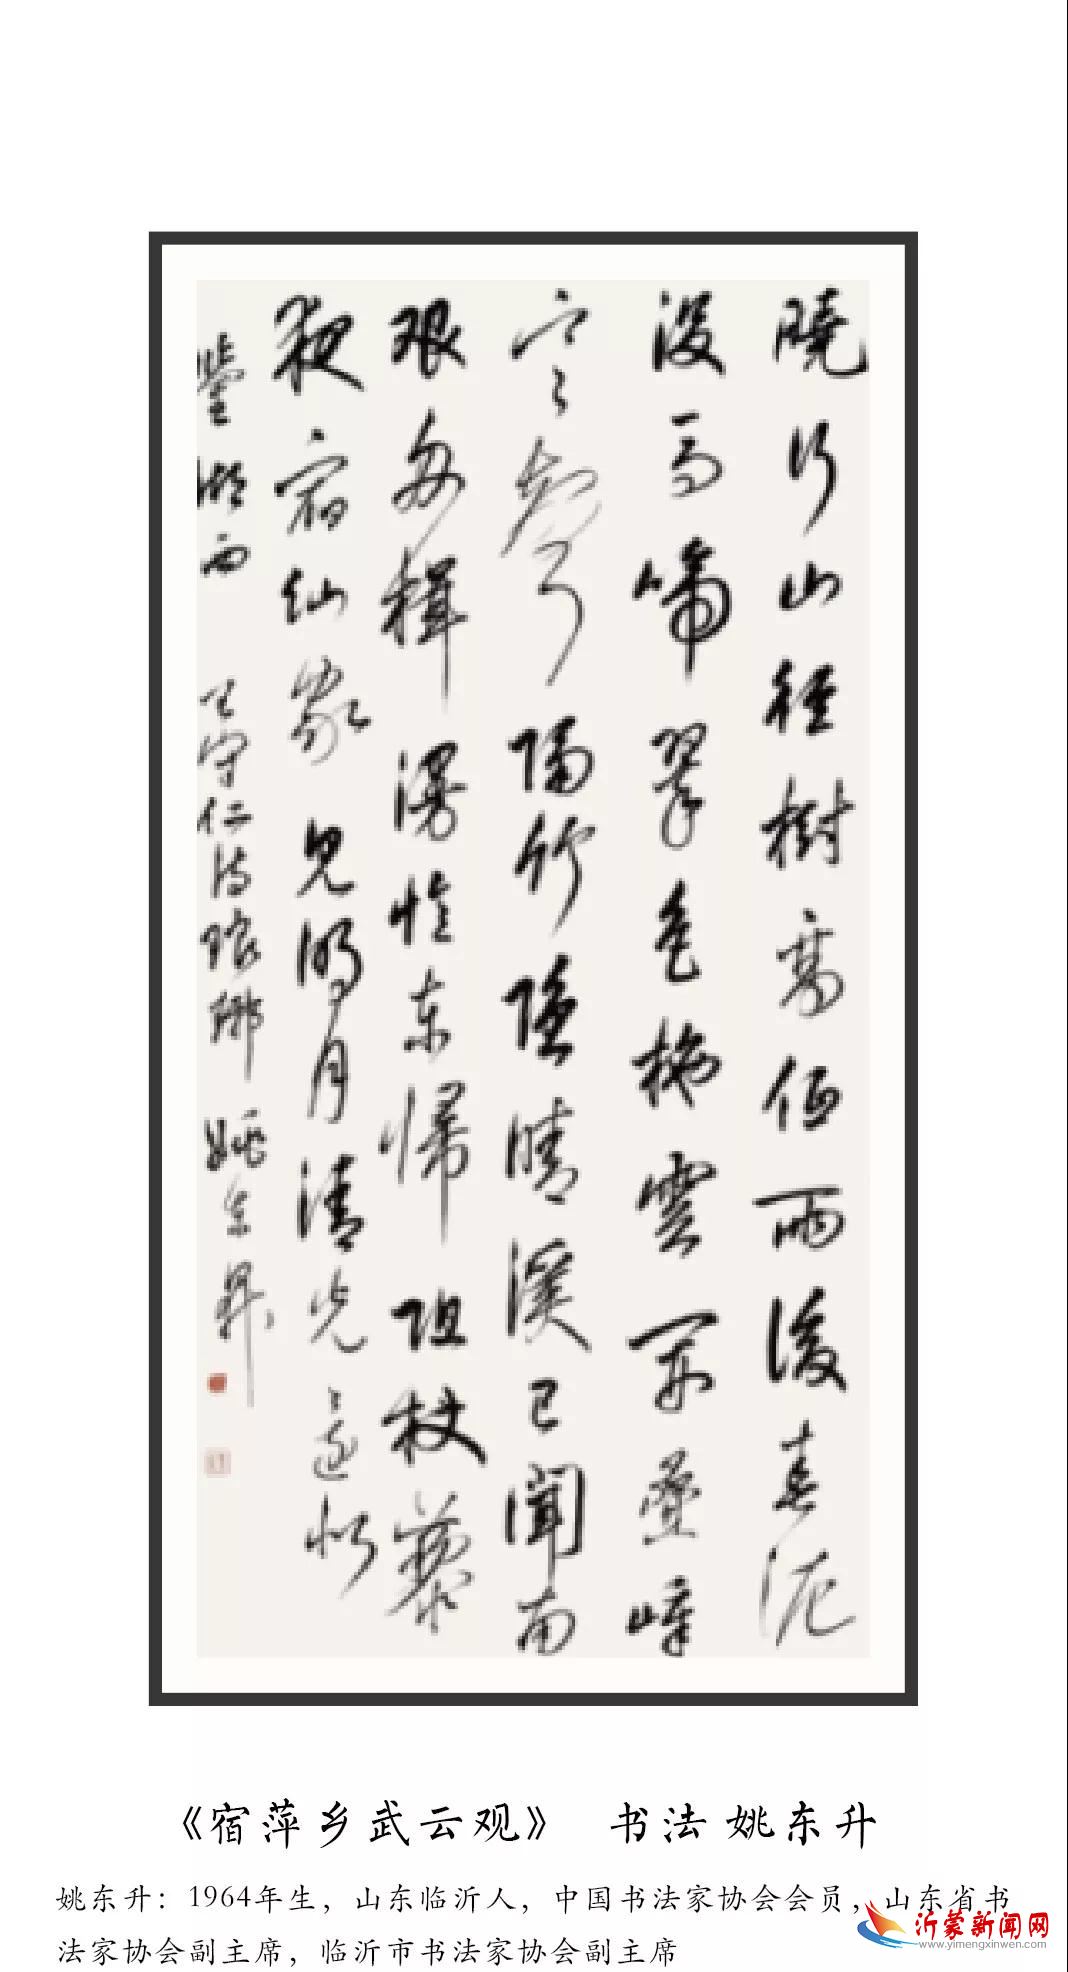 曉行山徑樹高低雨後春泥
沒馬啼翠色拖雲開疊嶂
寒聲隔竹隱晴溪已聞南
艰舟楫漫憶東歸阻杖藜
夜宿仙家見明月清光還似
鑒湖西 王守仁詩琅琊 姚東昇
《宿萍乡武云观》 书法 姚东升
姚东升：1964年生，山东临沂人，中国书法家协会会员，山东省书
法家协会副主席，临沂市书法家协会副主席
沂蒙新闻网
www.yimengxinwen.com